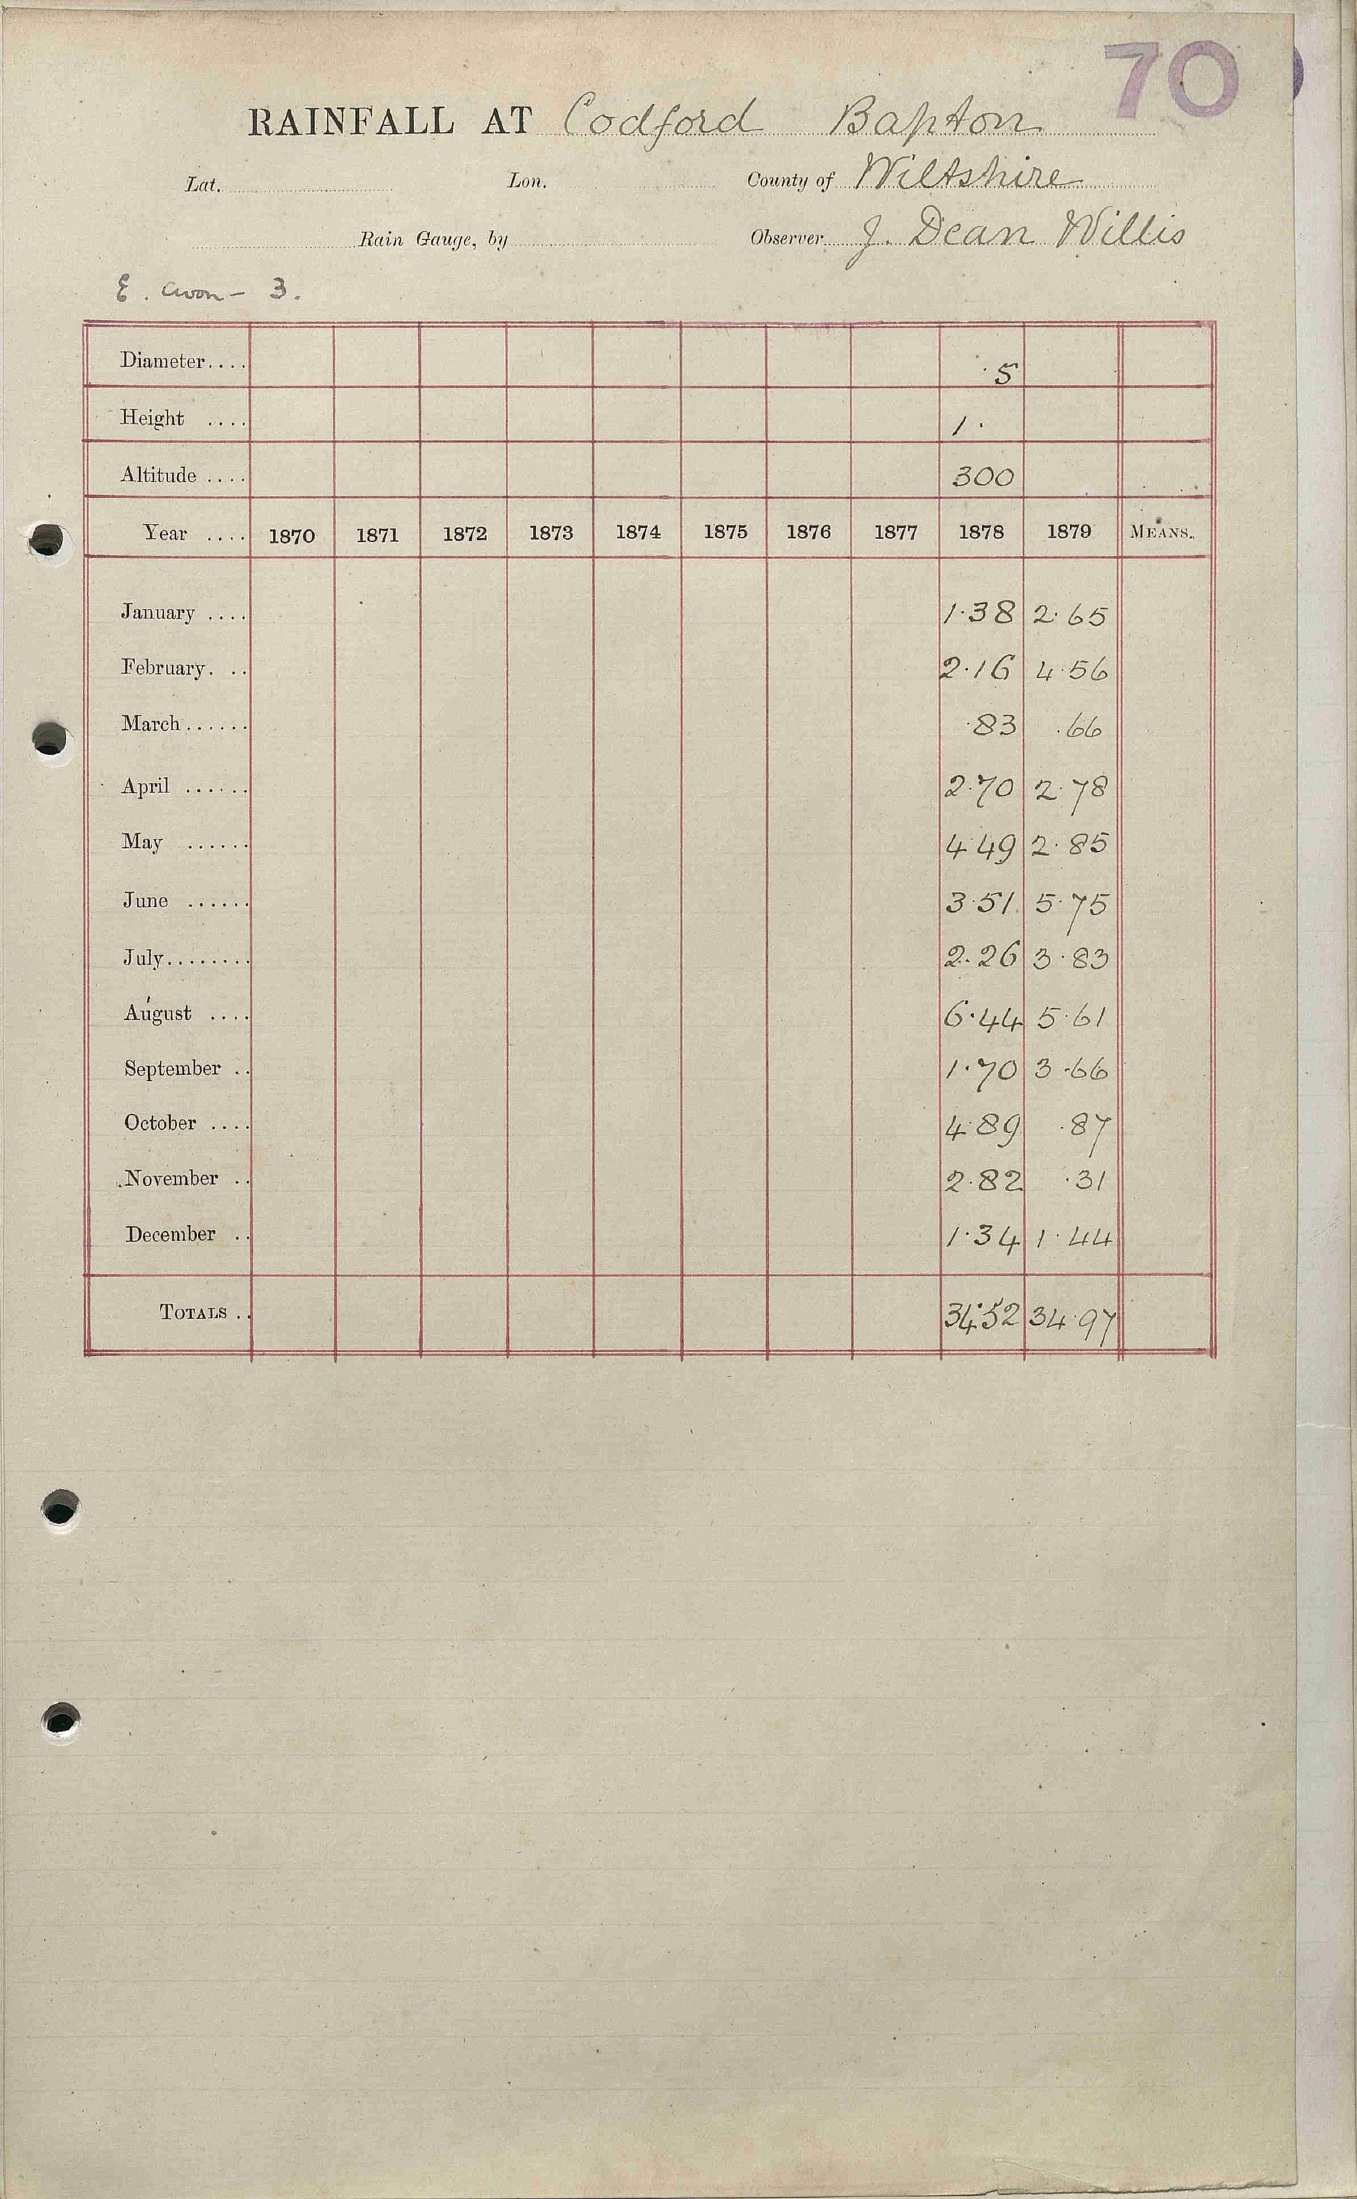 70
RAINFALL AT Codford Bapton
Lat. Lon. County of Wiltshire
Rain Gauge, by Observer J. Dean Willis
E. Avon - 3.
Diameter.... 5
Height .... 1.
Altitude .... 300
Year .... 1870 1871 1872 1873 1874 1875 1876 1877 1878 1879 MEANS.
January .... 1.38 2.65
February. .. 2.16 4.56
March...... .83 .66
April ...... 2.70 2.78
May ...... 4.49 2.85
June ...... 3.51 5.75
July........ 2.26 3.83
August .... 6.44 5.61
September .. 1.70 3.66
October .... 4.89 .87
November .. 2.82 .31
December .. 1.34 1.44
TOTALS .. 34.52 34.97